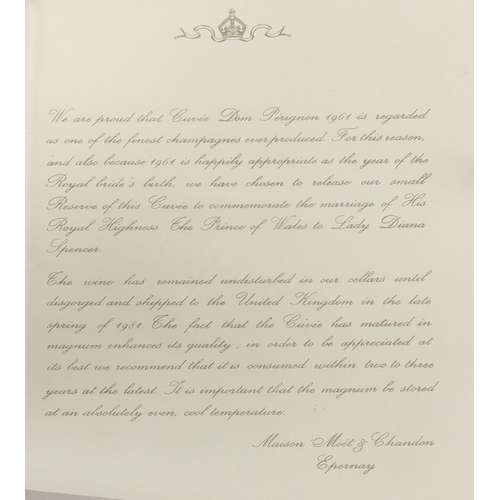 We are proud that Cuvée Dom Pérignon 1961 is regarded
as one of the finest champagnes ever produced. For this reason,
and also because 1961 is happily appropriate as the year of the
Royal bride's birth, we have chosen to release our small
Reserve of this Cuvée to commemorate the marriage of His
Royal Highness The Prince of Wales to Lady Diana
Spencer.
The wine has remained undisturbed in our cellars until
disgorged and shipped to the United Kingdom in the late
spring of 1981. The fact that the Cuvée has matured in
magnum enhances its quality ; in order to be appreciated at
its best we recommend that it is consumed within two to three
years at the latest. It is important that the magnum be stored
at an absolutely even, cool temperature.
Maison Moët & Chandon
Epernay